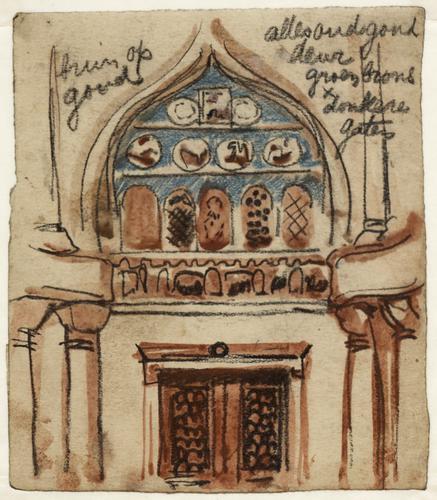 bruin op
goud
alles oud goud
deur
groen brons
x donkere
gaten